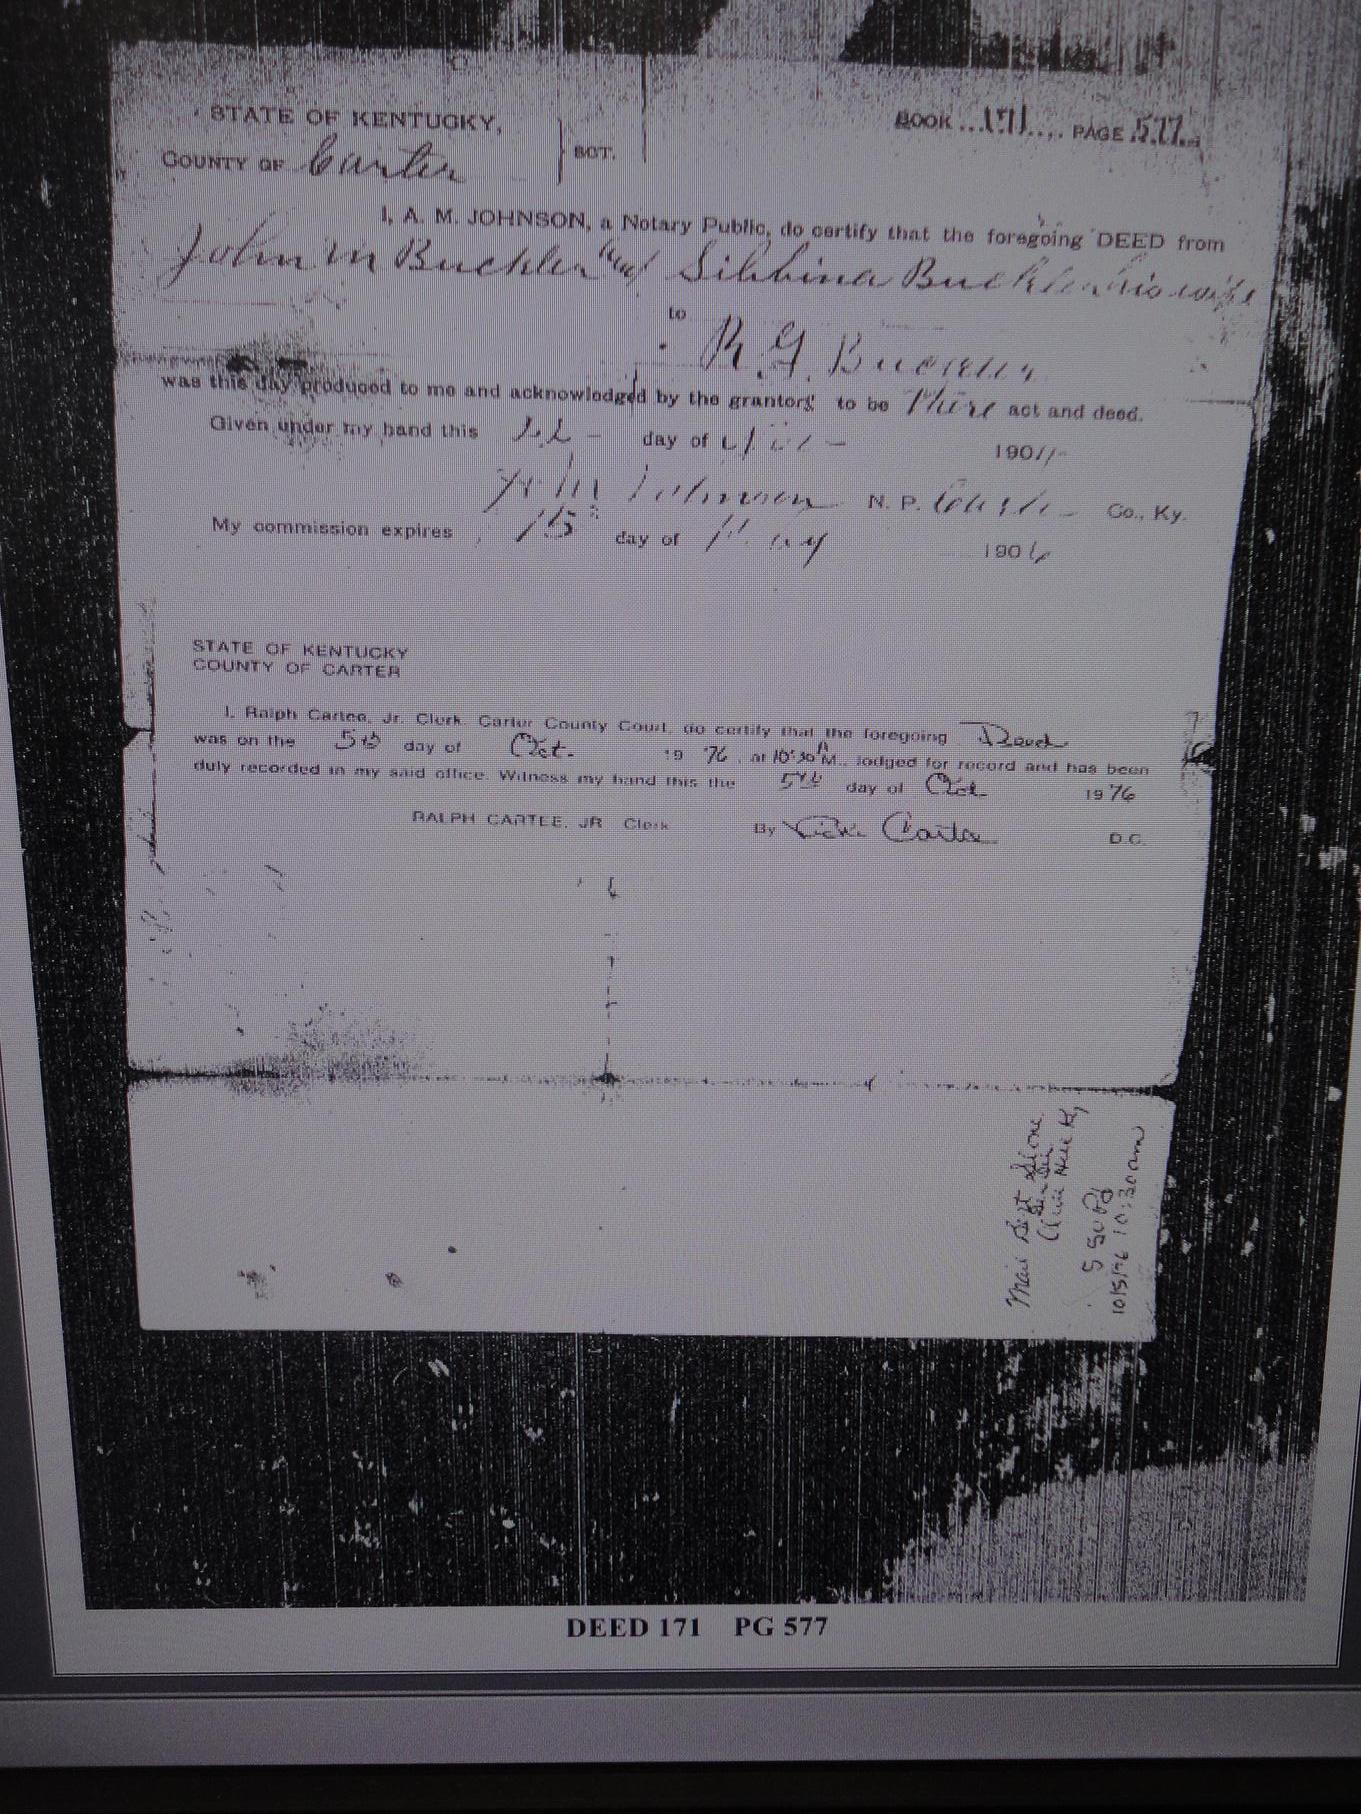 STATE OF KENTUCKY,
COUNTY OF Carter
SCT.
BOOK ...171.... PAGE 577
I, A. M. JOHNSON, a Notary Public, do certify that the foregoing DEED from
John M Buckler and Sibbina Buckler his wife
to
R. G. Buckler
was this day produced to me and acknowledged by the grantors to be there act and deed.
Given under my hand this 22 - day of 190
A M Johnson N. P. Carter Co., Ky.
My commission expires 15 day of May 1906
STATE OF KENTUCKY
COUNTY OF CARTER
I, Ralph Cartee, Jr. Clerk Carter County Court, do certify that the foregoing Deed
was on the 5th day of Oct. 19 76, at 10:30 A M., lodged for record and has been
duly recorded in my said office. Witness my hand this the 5th day of Oct 1976
RALPH CARTEE, JR Clerk By Vicki Cartee D.C.
Mail Bert Stone
Olive Hill Ky
5 50 Pd
10/5/76 10:30 am
DEED 171 PG 577